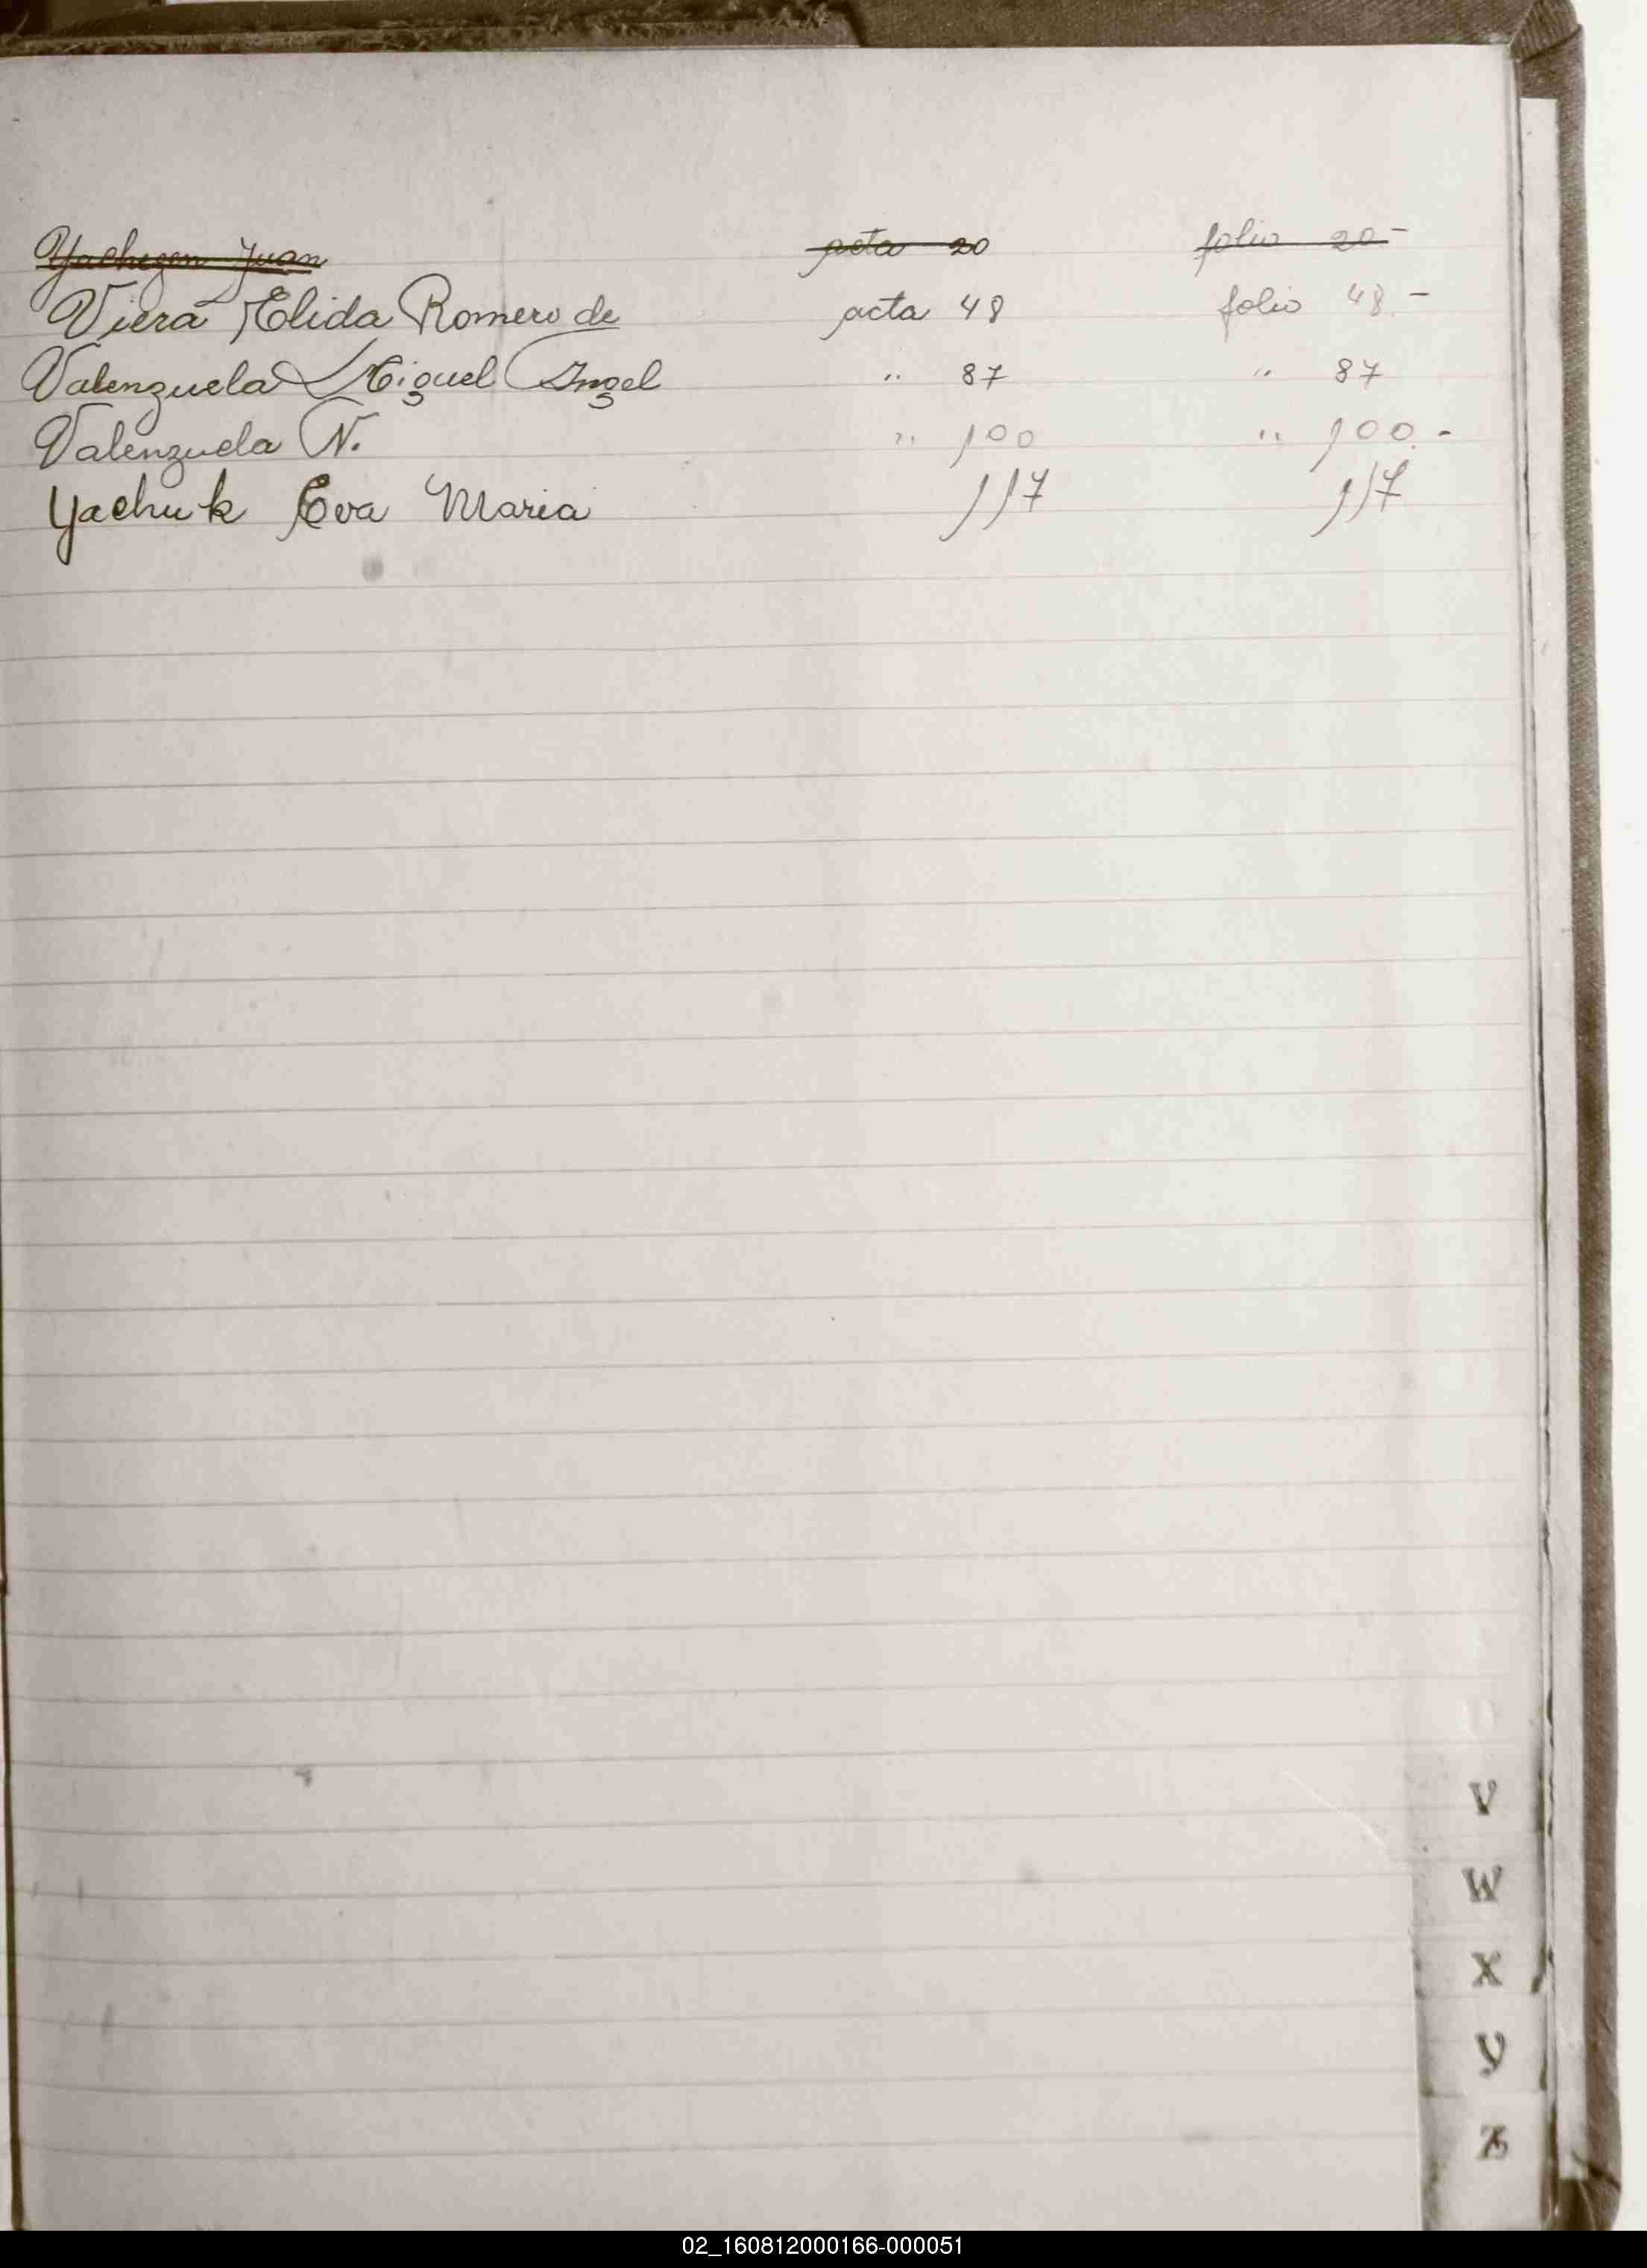 Yachezen Juan acta 20 folio 20-
Viera Elida Romero de acta 48 folio 48-
Valenzuela Miguel Angel " 87 " 87
Valenzuela N. " 100 " 100.-
Yachuk Eva Maria 117 117
V
W
X
Y
Z
02_160812000166-000051